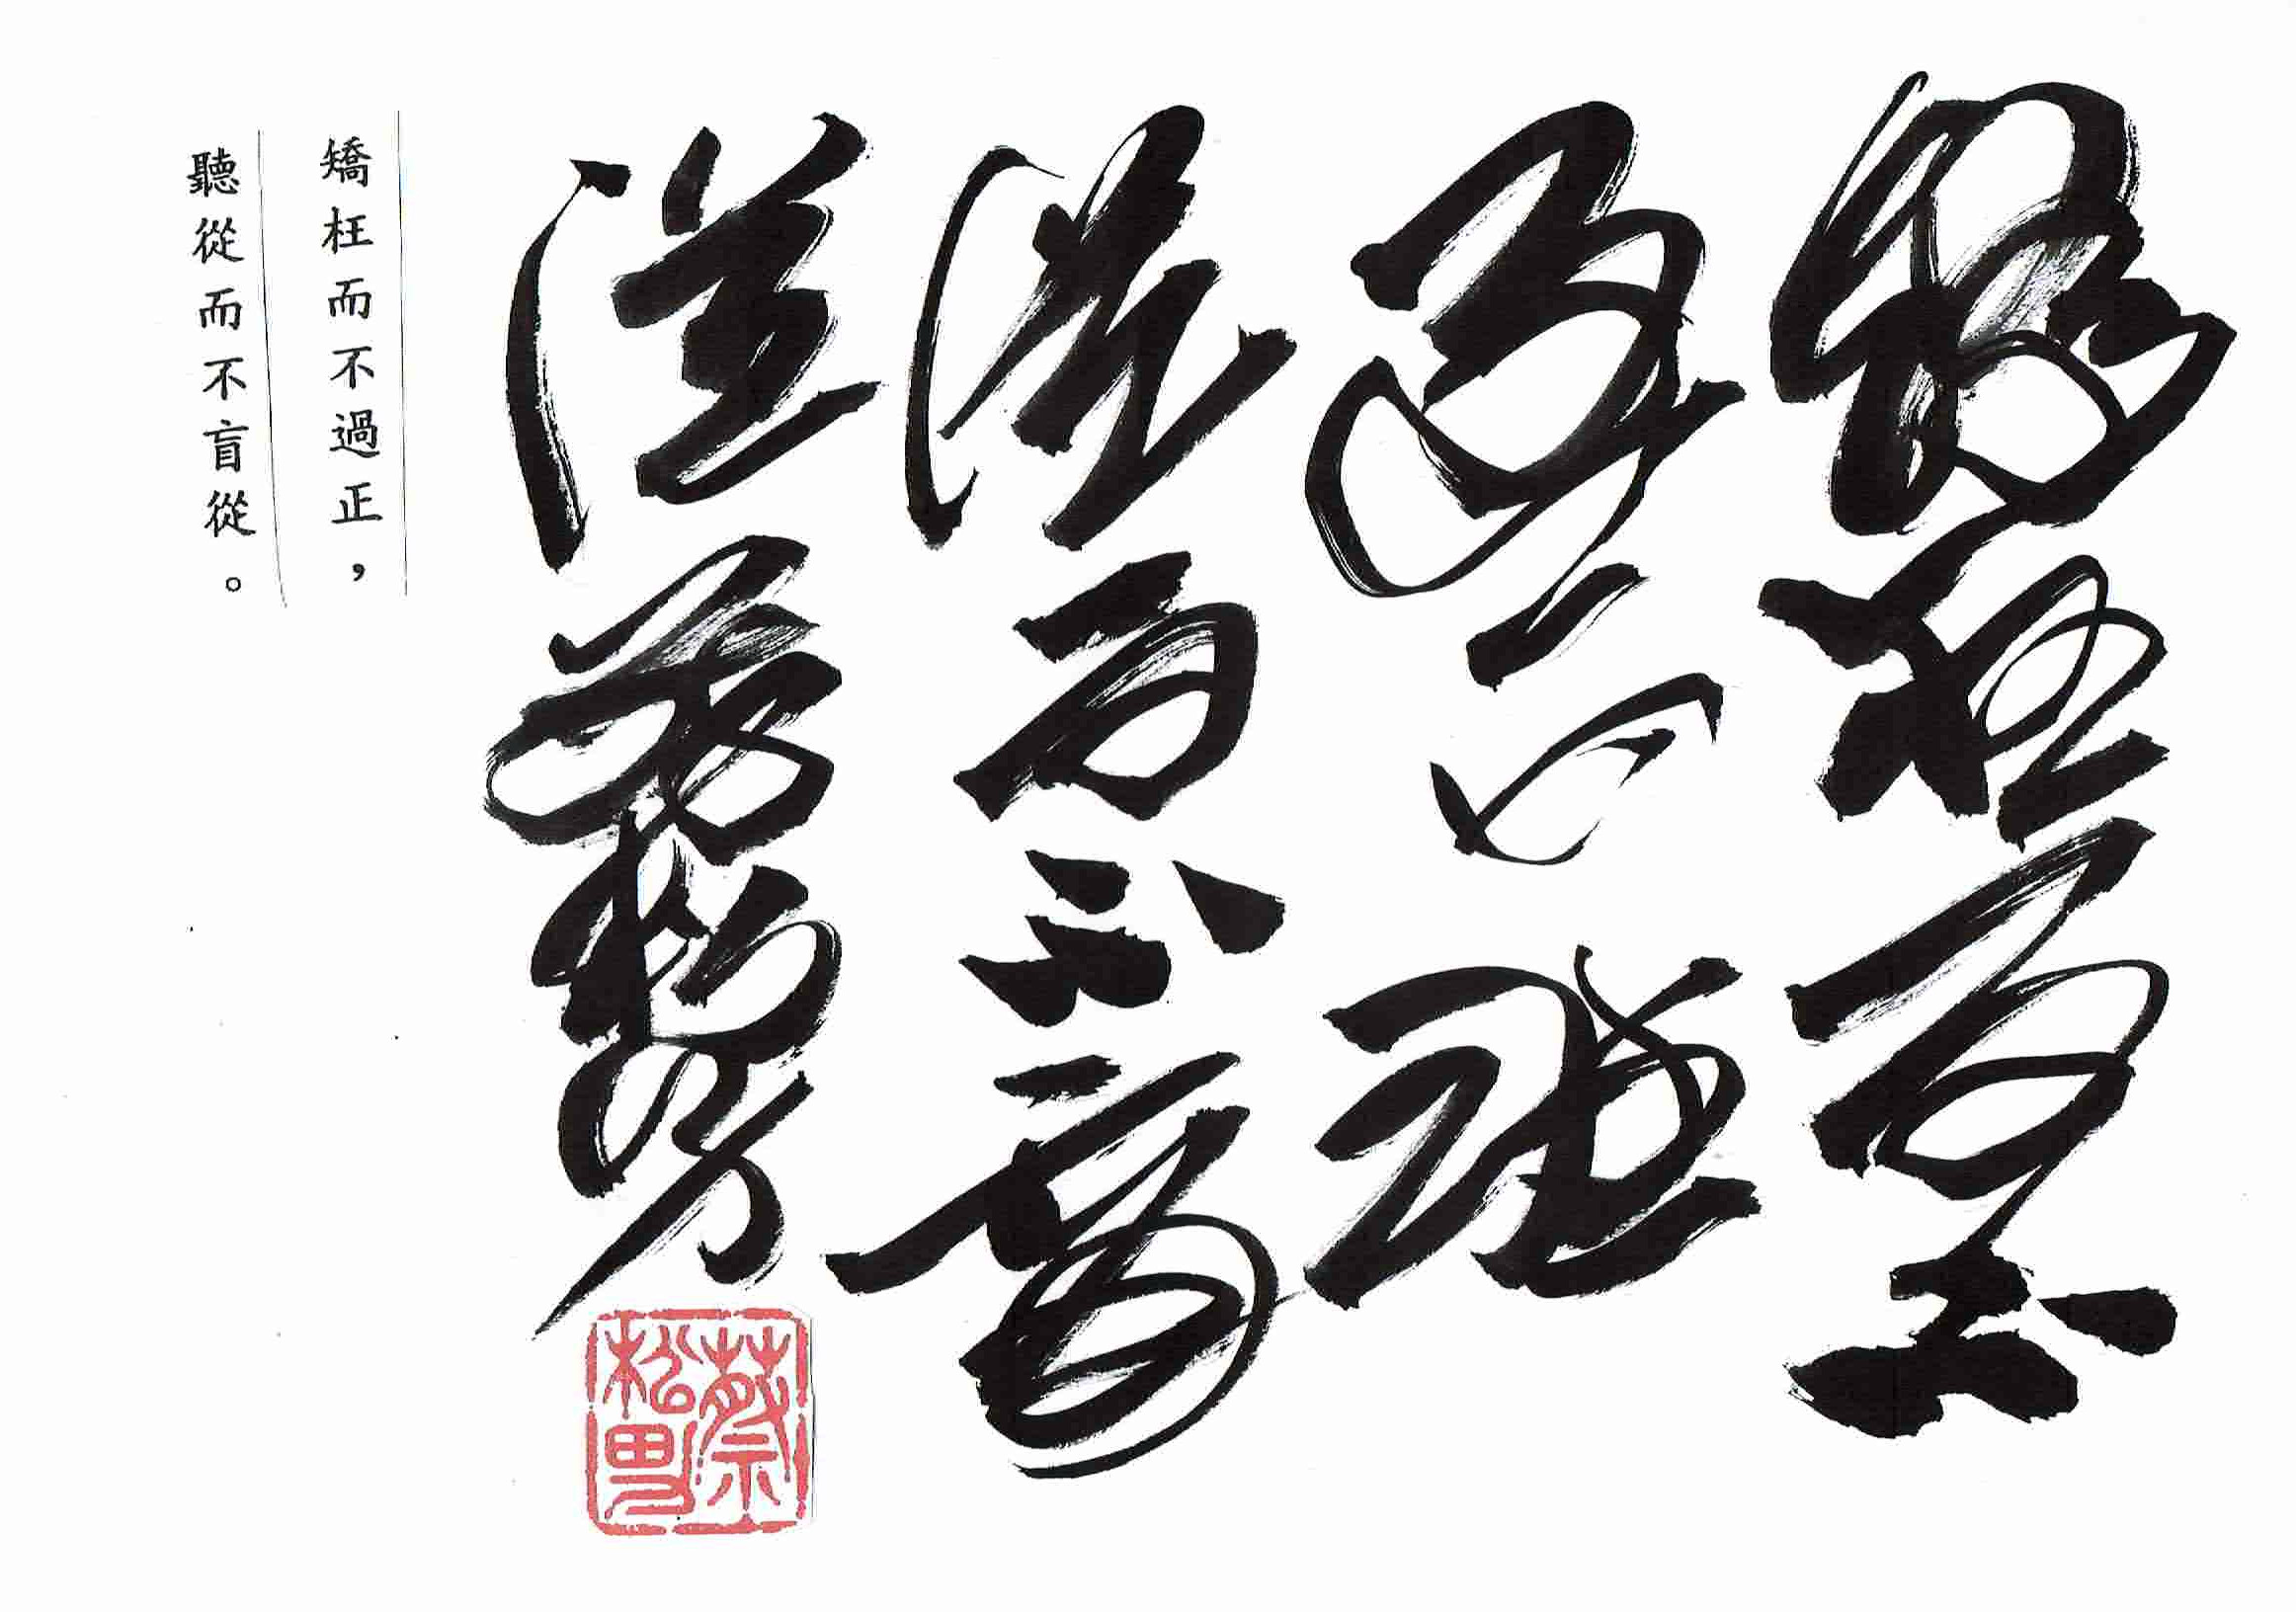 矯枉而不
過正聽
從而不盲
從蔡松男
蔡松男
矯枉而不過正，
聽從而不盲從。